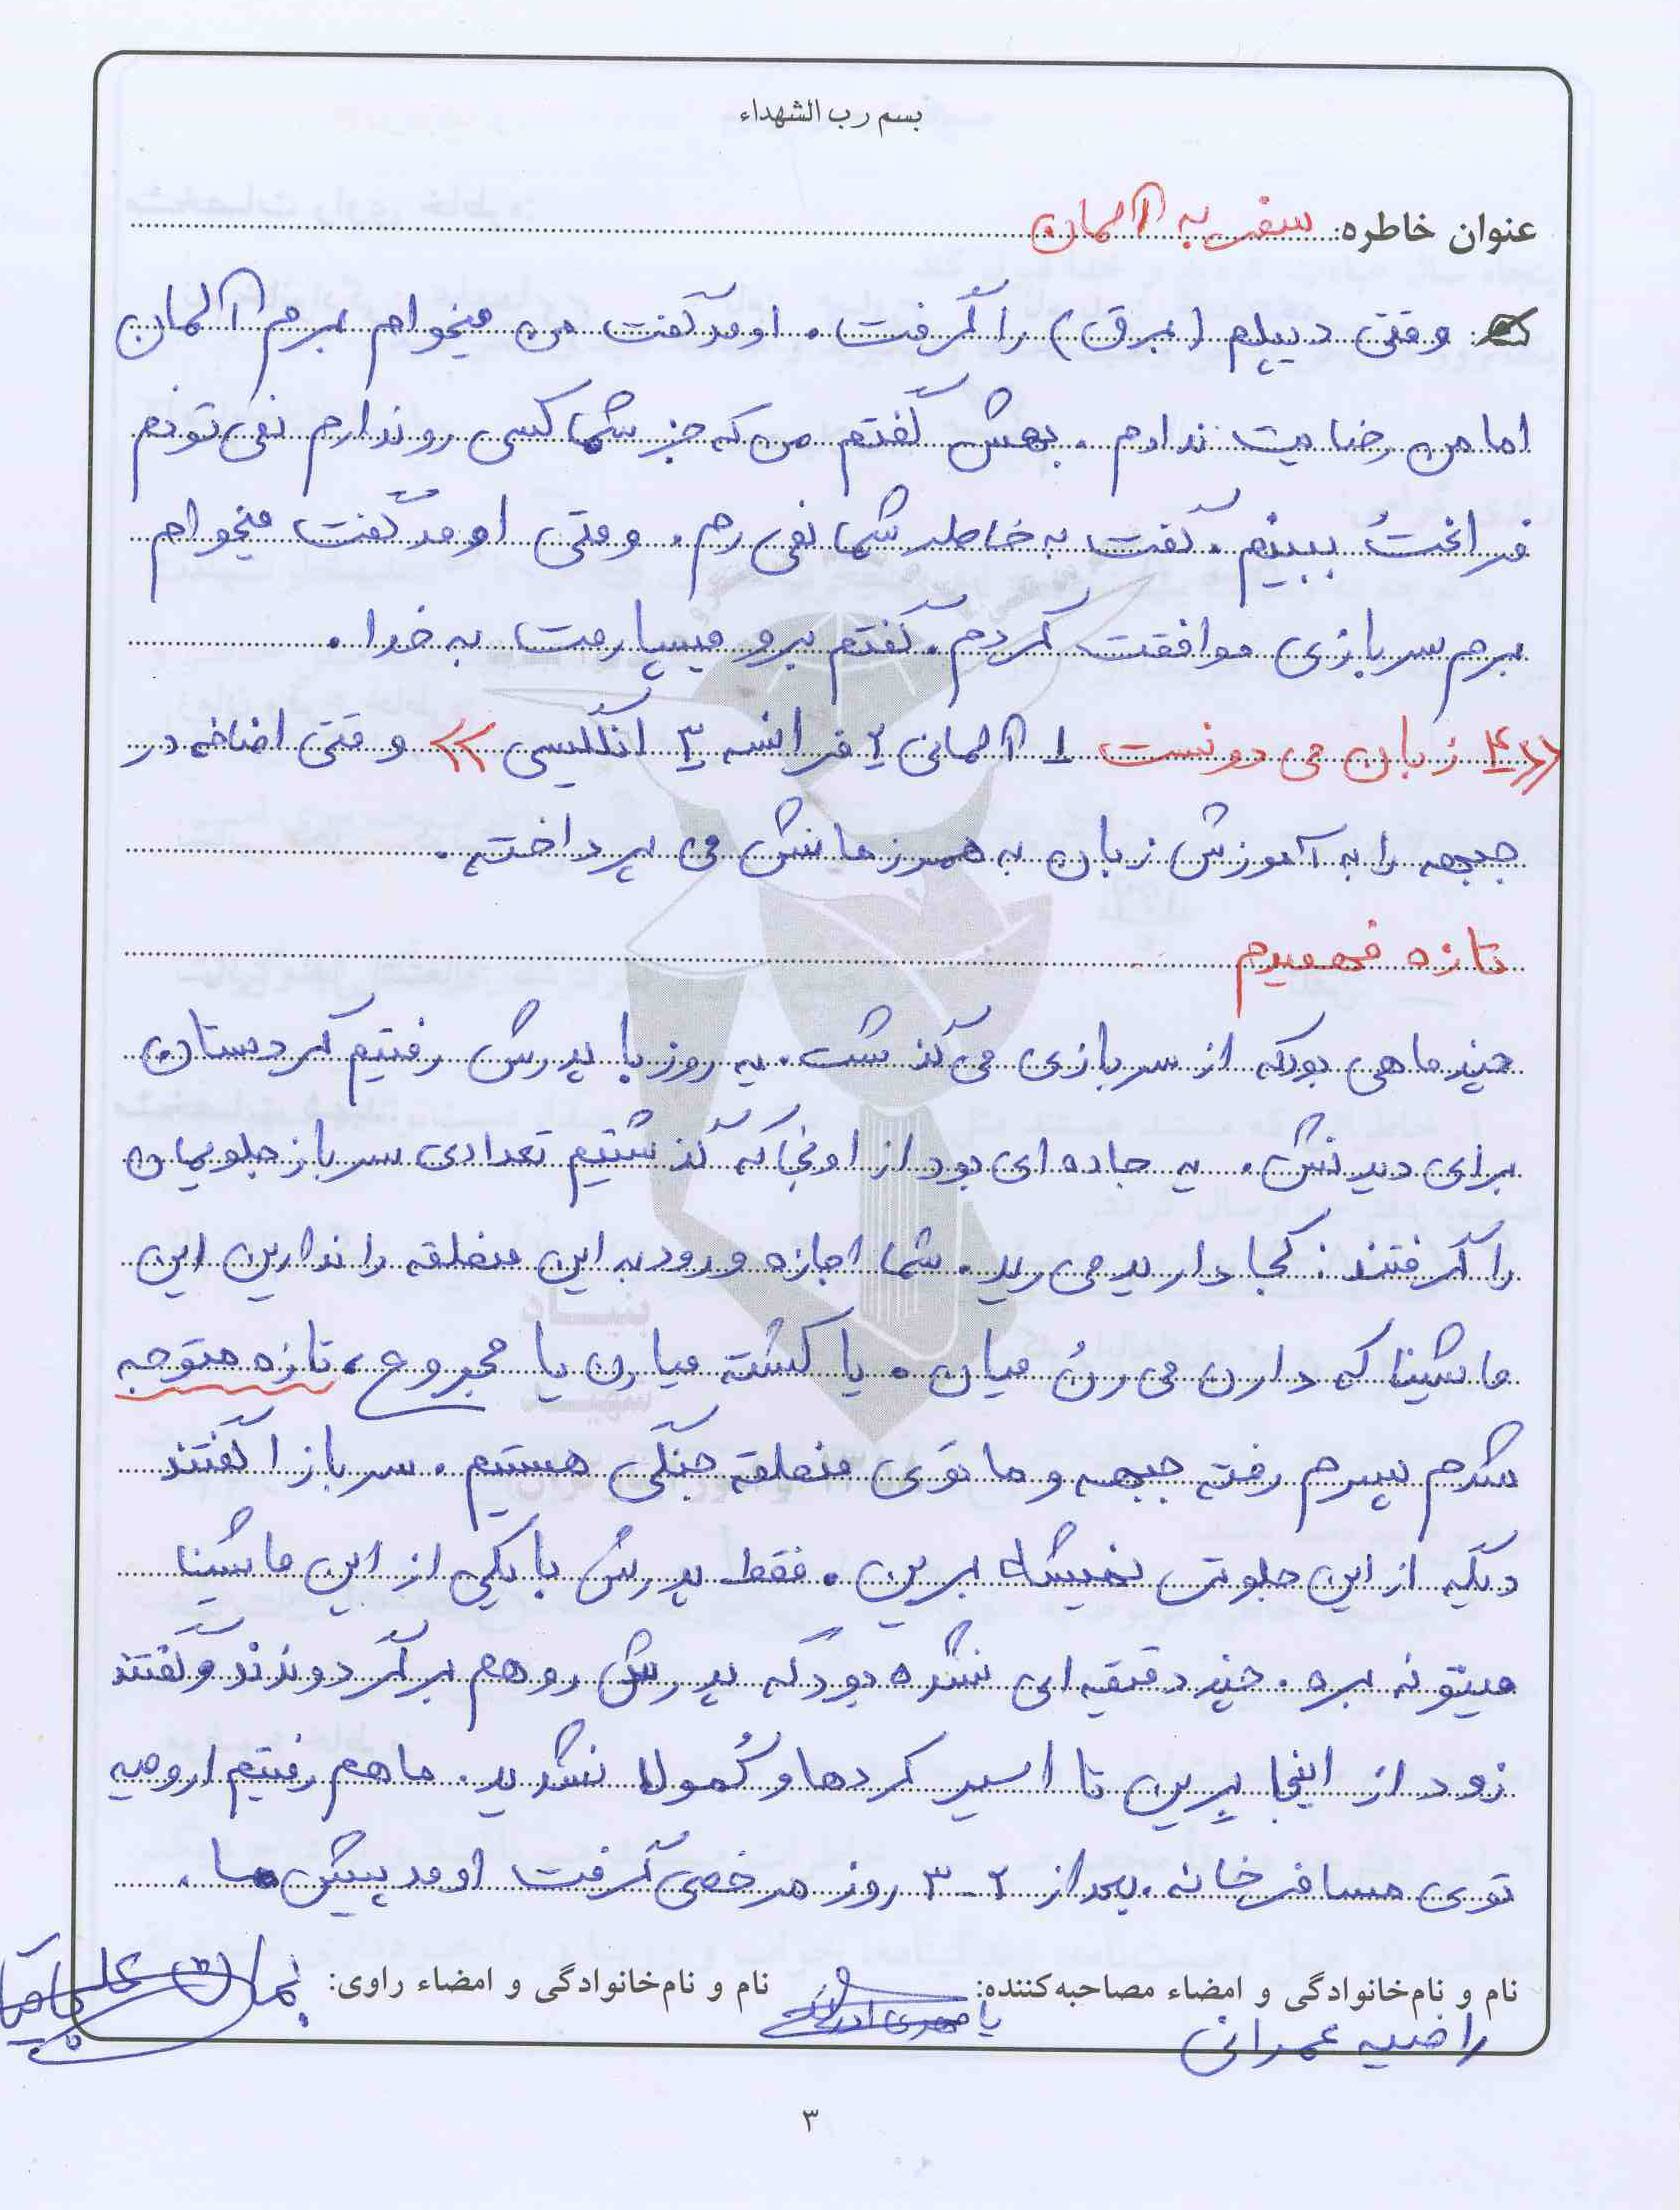 بسم رب الشهداء
عنوان خاطره: سفر به آلمان
وقتی دیپلم (برق) را گرفت. اومد گفت من میخوام برم آلمان
اما من رضایت ندادم. بهش گفتم من که جز شما کسی رو ندارم نمی تونم
فراغتُ ببینم. گفت به خاطر شما نمی رم. وقتی اومد گفت میخوام
برم سربازی موافقت کردم. گفتم برو میسپارمت به خدا.
«۴ زبان می دونست ۱ آلمانی ۲ فرانسه ۳ انگلیسی» وقتی اضافه در
جبهه را به آموزش زبان به همرزمانش می پرداخته.
تازه فهمیدم
چند ماهی بود که از سربازی می گذشت. یه روز با پدرش رفتیم کردستان
برای دیدنش. یه جاده ای بود از اونجا که گذشتیم تعدادی سرباز جلویمان
را گرفتند: کجا دارید می رید. شما اجازه ورود به این منطقه را ندارین این
ماشینا که دارن می رنُ میان. یا کشته میارن یا مجروح، تازه متوجه
شدم پسرم رفته جبهه و ما توی منطقه جنگی هستیم. سربازا گفتند
دیگه از این جلوتر نمیشه برین. فقط پدرش با یکی از این ماشینا
میتونه بره. چند دقیقه ای نشده بود که پدرش رو هم برگردوندند و گفتند
زود از اینجا برین تا اسیر کردها و کُمولا نشدید. ما هم رفتیم ارومیه
توی مسافرخانه. بعد از ۲-۳ روز مرخصی گرفت اومد پیش ما.
نام و نام‌خانوادگی و امضاء مصاحبه‌کننده: نام و نام‌خانوادگی و امضاء راوی:
راضیه عمرانی
۳